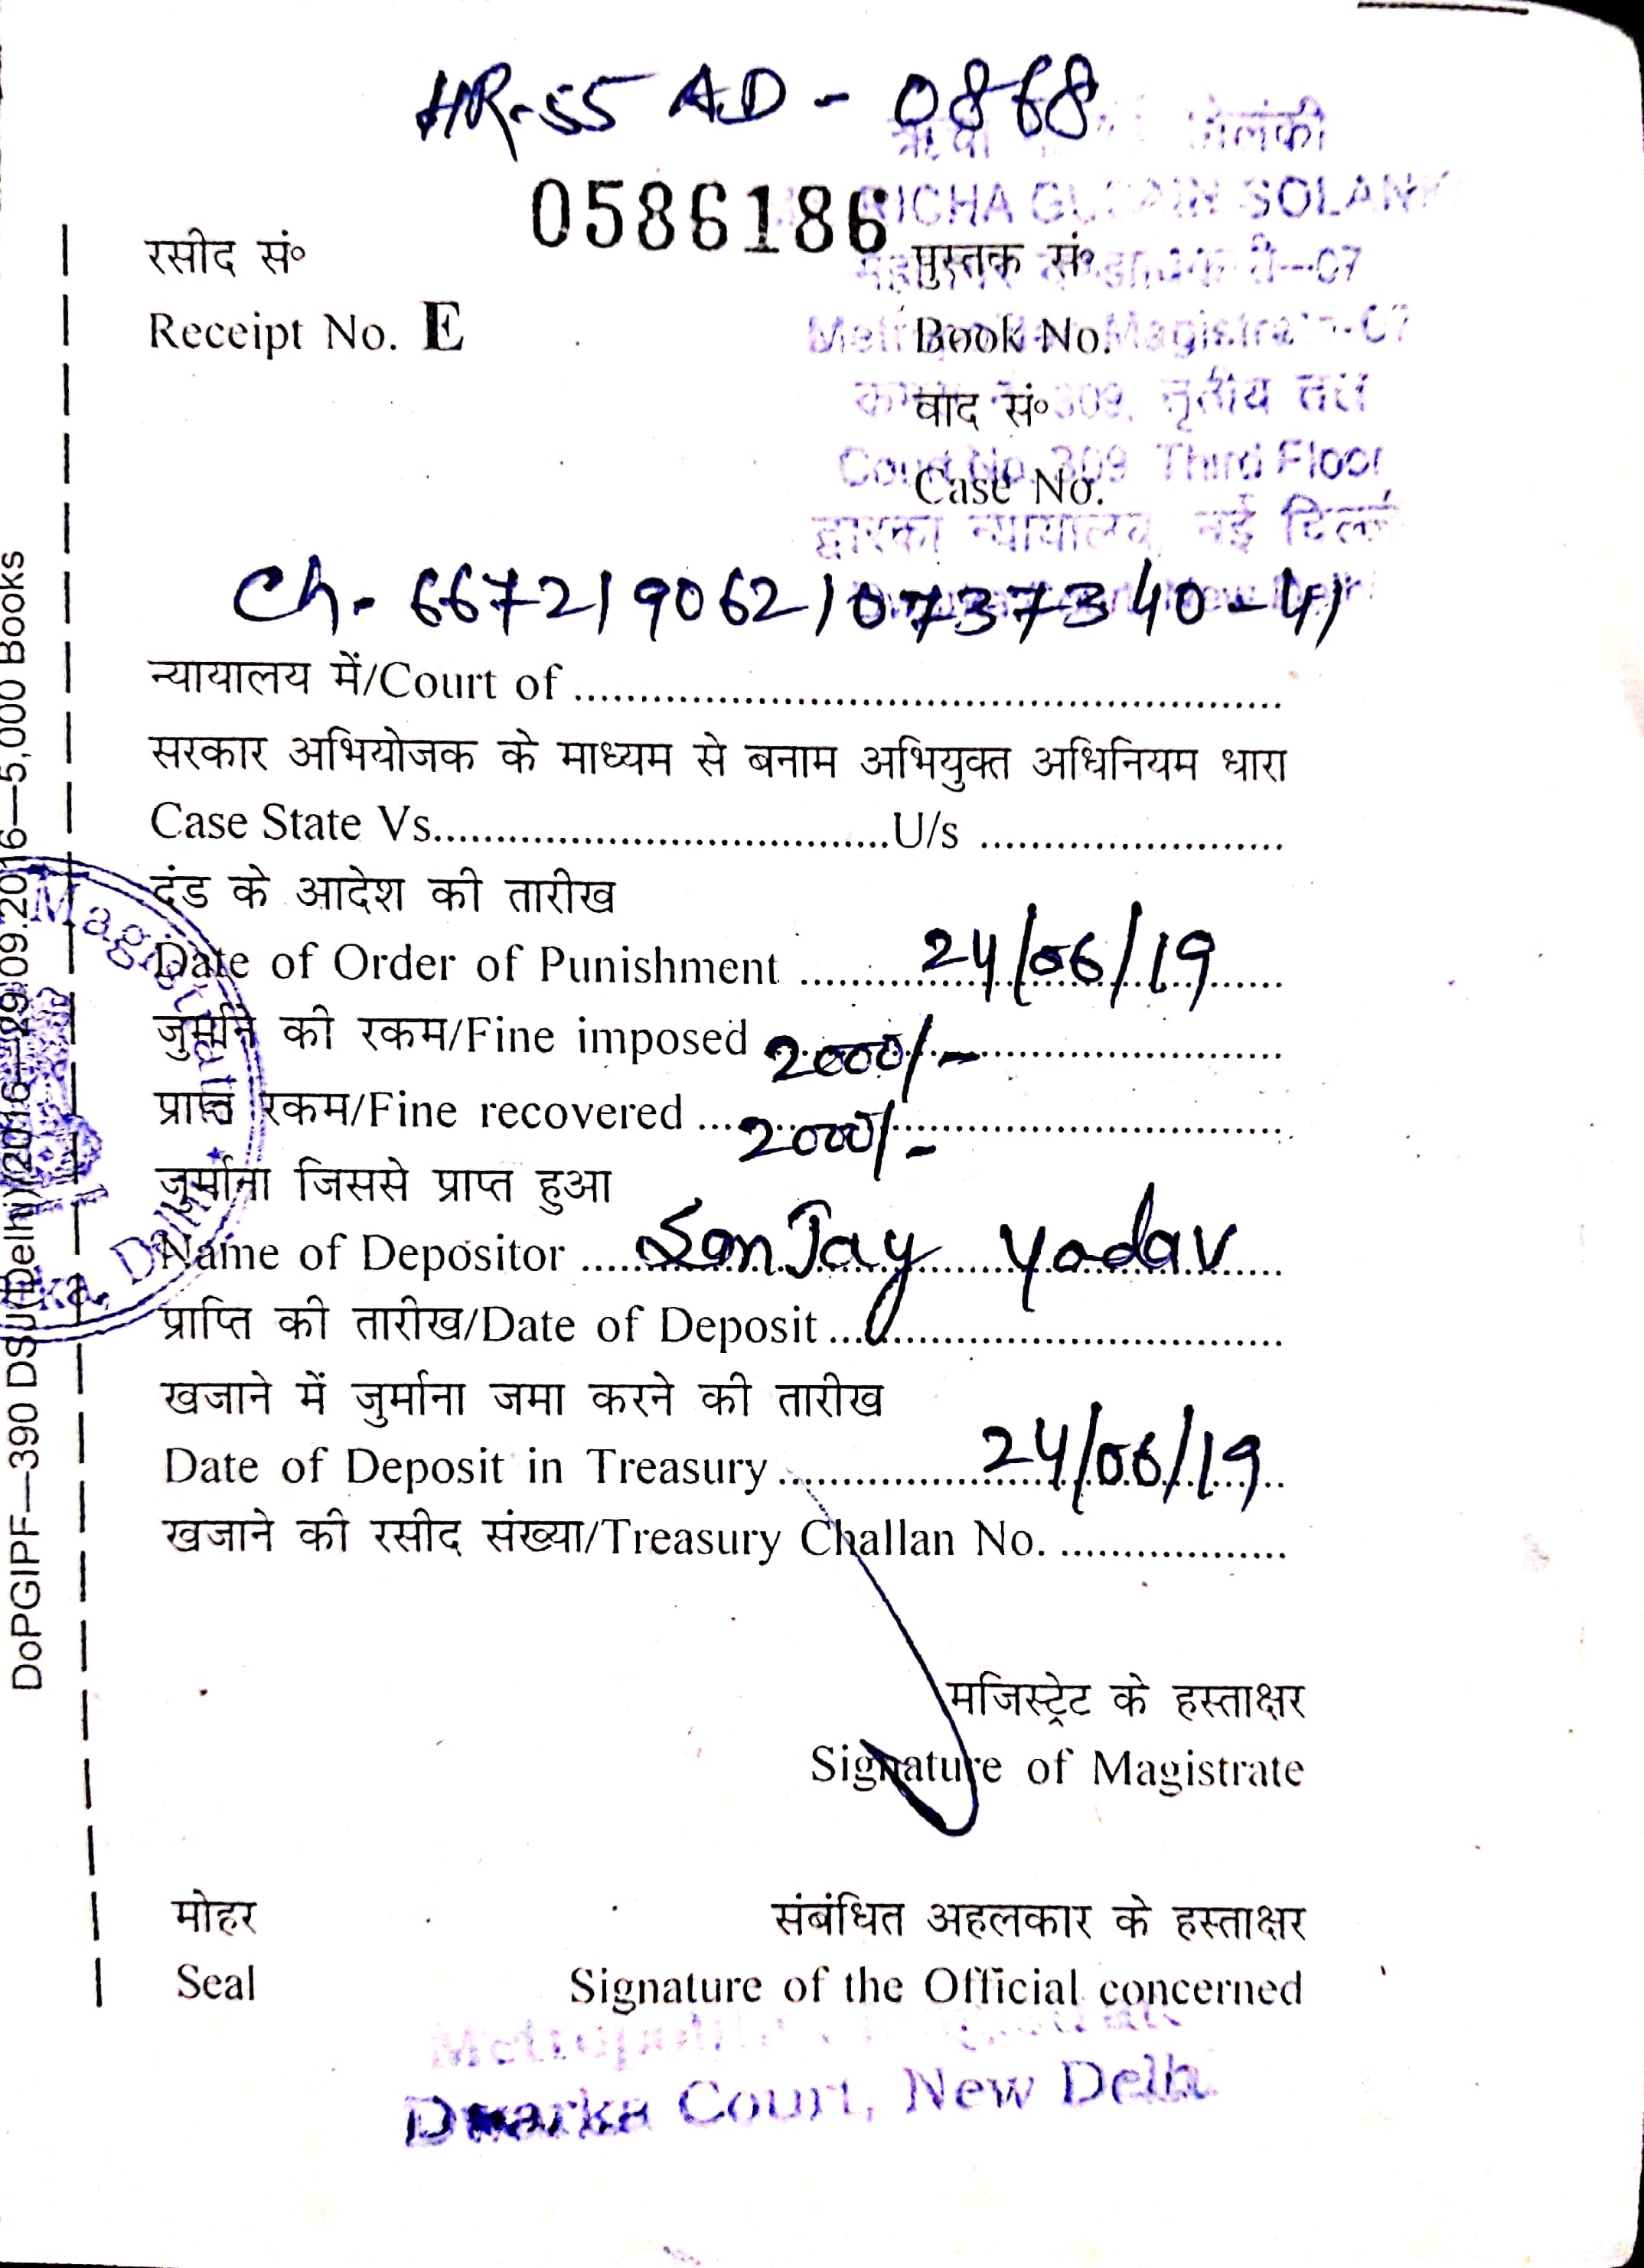 HR-55 AD - 0868
0586186
रसीद सं०
Receipt No. E
पुस्तक सं०
Book No.
वाद सं०
Case No.
SOLANKI
309, तृतीय तल
Court No. 309 Third Floor
द्वारका न्यायालय, नई दिल्ली
Ch - 66721906210737340-41
न्यायालय में/Court of
सरकार अभियोजक के माध्यम से बनाम अभियुक्त अधिनियम धारा
Case State Vs. U/s
दंड के आदेश की तारीख
Date of Order of Punishment 24/06/19
जुर्माने की रकम/Fine imposed 2000/-
प्राप्त रकम/Fine recovered 2000/-
जुर्माना जिससे प्राप्त हुआ
Name of Depositor Sanjay Yadav
प्राप्ति की तारीख/Date of Deposit
खजाने में जुर्माना जमा करने की तारीख
Date of Deposit in Treasury 24/06/19
खजाने की रसीद संख्या/Treasury Challan No.
मजिस्ट्रेट के हस्ताक्षर
Signature of Magistrate
मोहर
Seal
संबंधित अहलकार के हस्ताक्षर
Signature of the Official concerned
Metropolitan Magistrate
Dwarka Court, New Delhi
5,000 Books
DoPGIPF—390